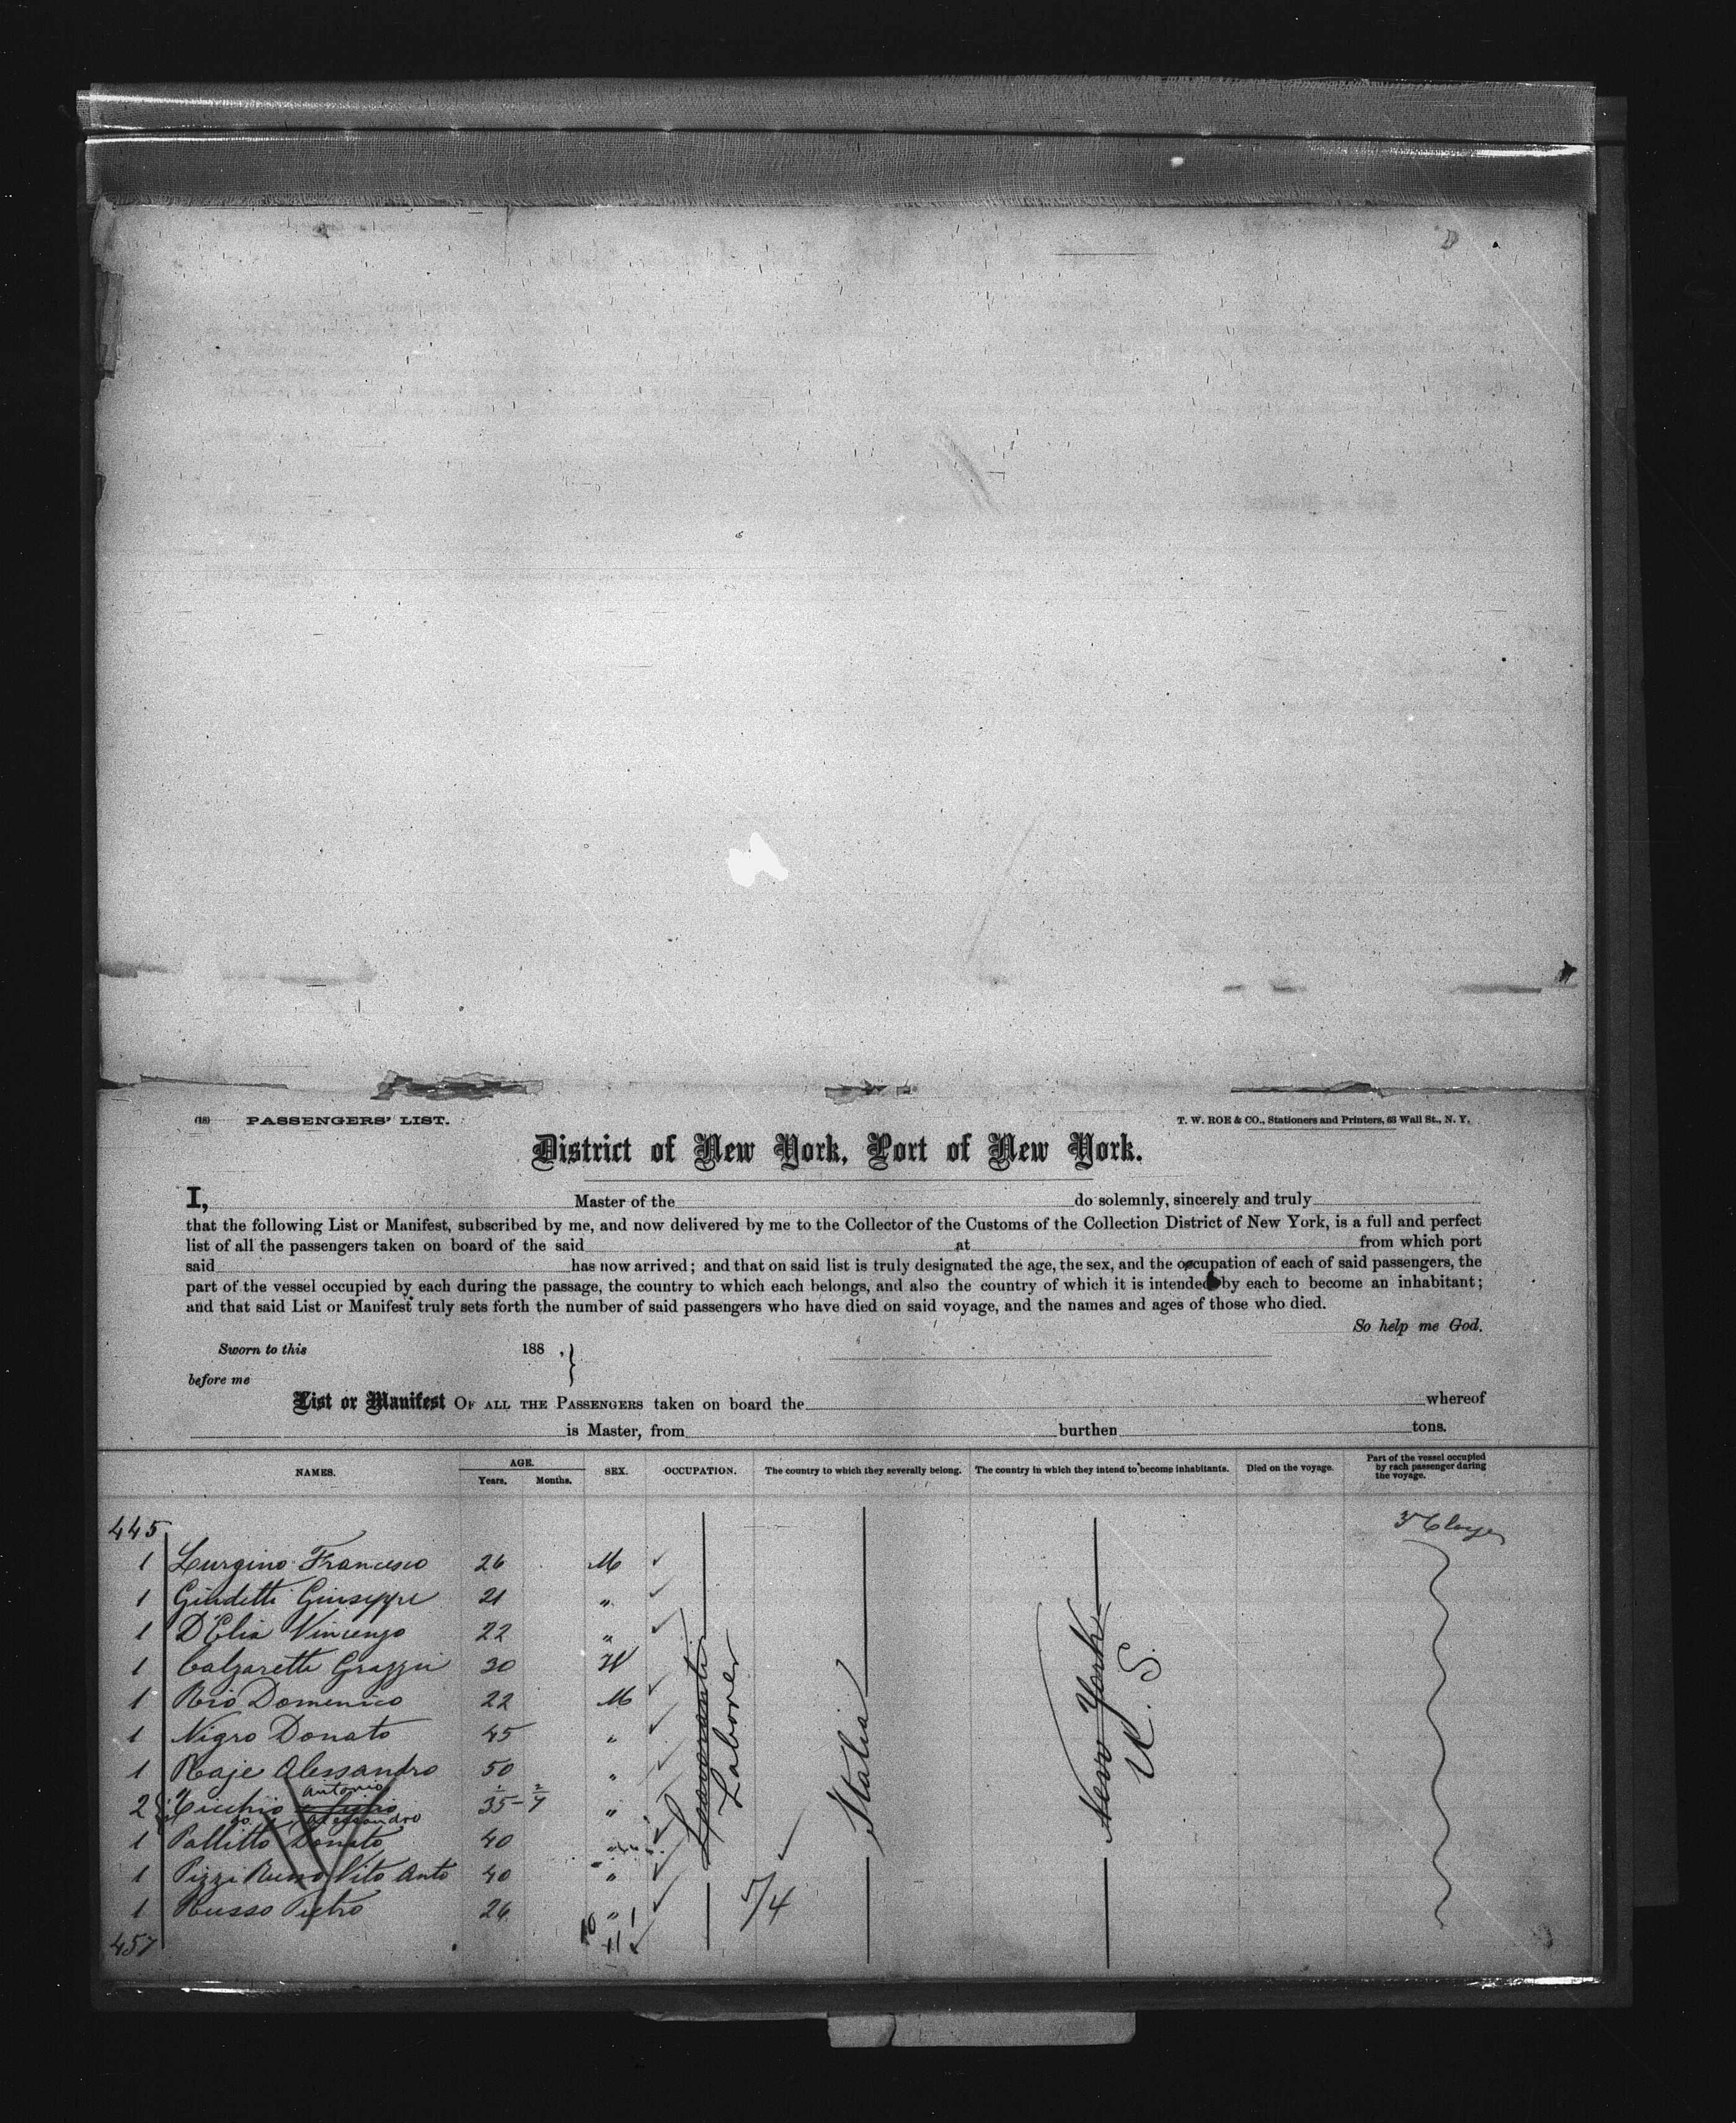 (18) PASSENGERS' LIST. T. W. ROE & CO., Stationers and Printers, 63 Wall St., N. Y.
District of New York, Port of New York.
I, Master of the do solemnly, sincerely and truly
that the following List or Manifest, subscribed by me, and now delivered by me to the Collector of the Customs of the Collection District of New York, is a full and perfect
list of all the passengers taken on board of the said at from which port
said has now arrived; and that on said list is truly designated the age, the sex, and the occupation of each of said passengers, the
part of the vessel occupied by each during the passage, the country to which each belongs, and also the country of which it is intended by each to become an inhabitant;
and that said List or Manifest truly sets forth the number of said passengers who have died on said voyage, and the names and ages of those who died.
So help me God.
Sworn to this 188 ,}
before me
List or Manifest OF ALL THE PASSENGERS taken on board the whereof
is Master, from burthen tons.
NAMES. AGE. Years. Months. SEX. OCCUPATION. The country to which they severally belong. The country in which they intend to become inhabitants. Died on the voyage. Part of the vessel occupied by each passenger during the voyage.
445
1 Lurgino Francesco 26 M
1 Giudetti Giuseppe 21 "
1 D'Elia Vincenzo 22 "
1 Calzaretti 30 W
1 Rio Domenico 22 M
1 Nigro Donato 45 "
1 Raje Alessandro 50 "
Antonio
2 Cicchio 35-7 "
do. Alessandro
1 Pallitto Donato 40 "
1 Pizzi Russo Vito Anto 40 "
1 Russo Pietro 26 " 1
457 10 11
Laborer
Italia
New York
U. S.
5/4